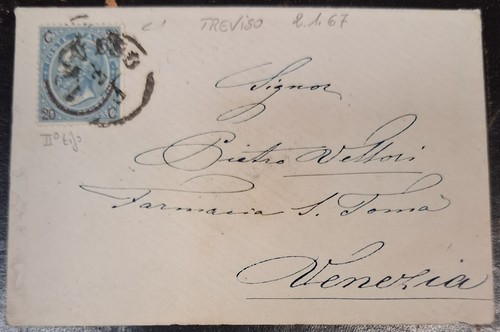 c1 TREVISO 2.1.67
C
20 C
IIº tipo
Signor
Pietro Vettori
Farmacia S. Tomà
Venezia